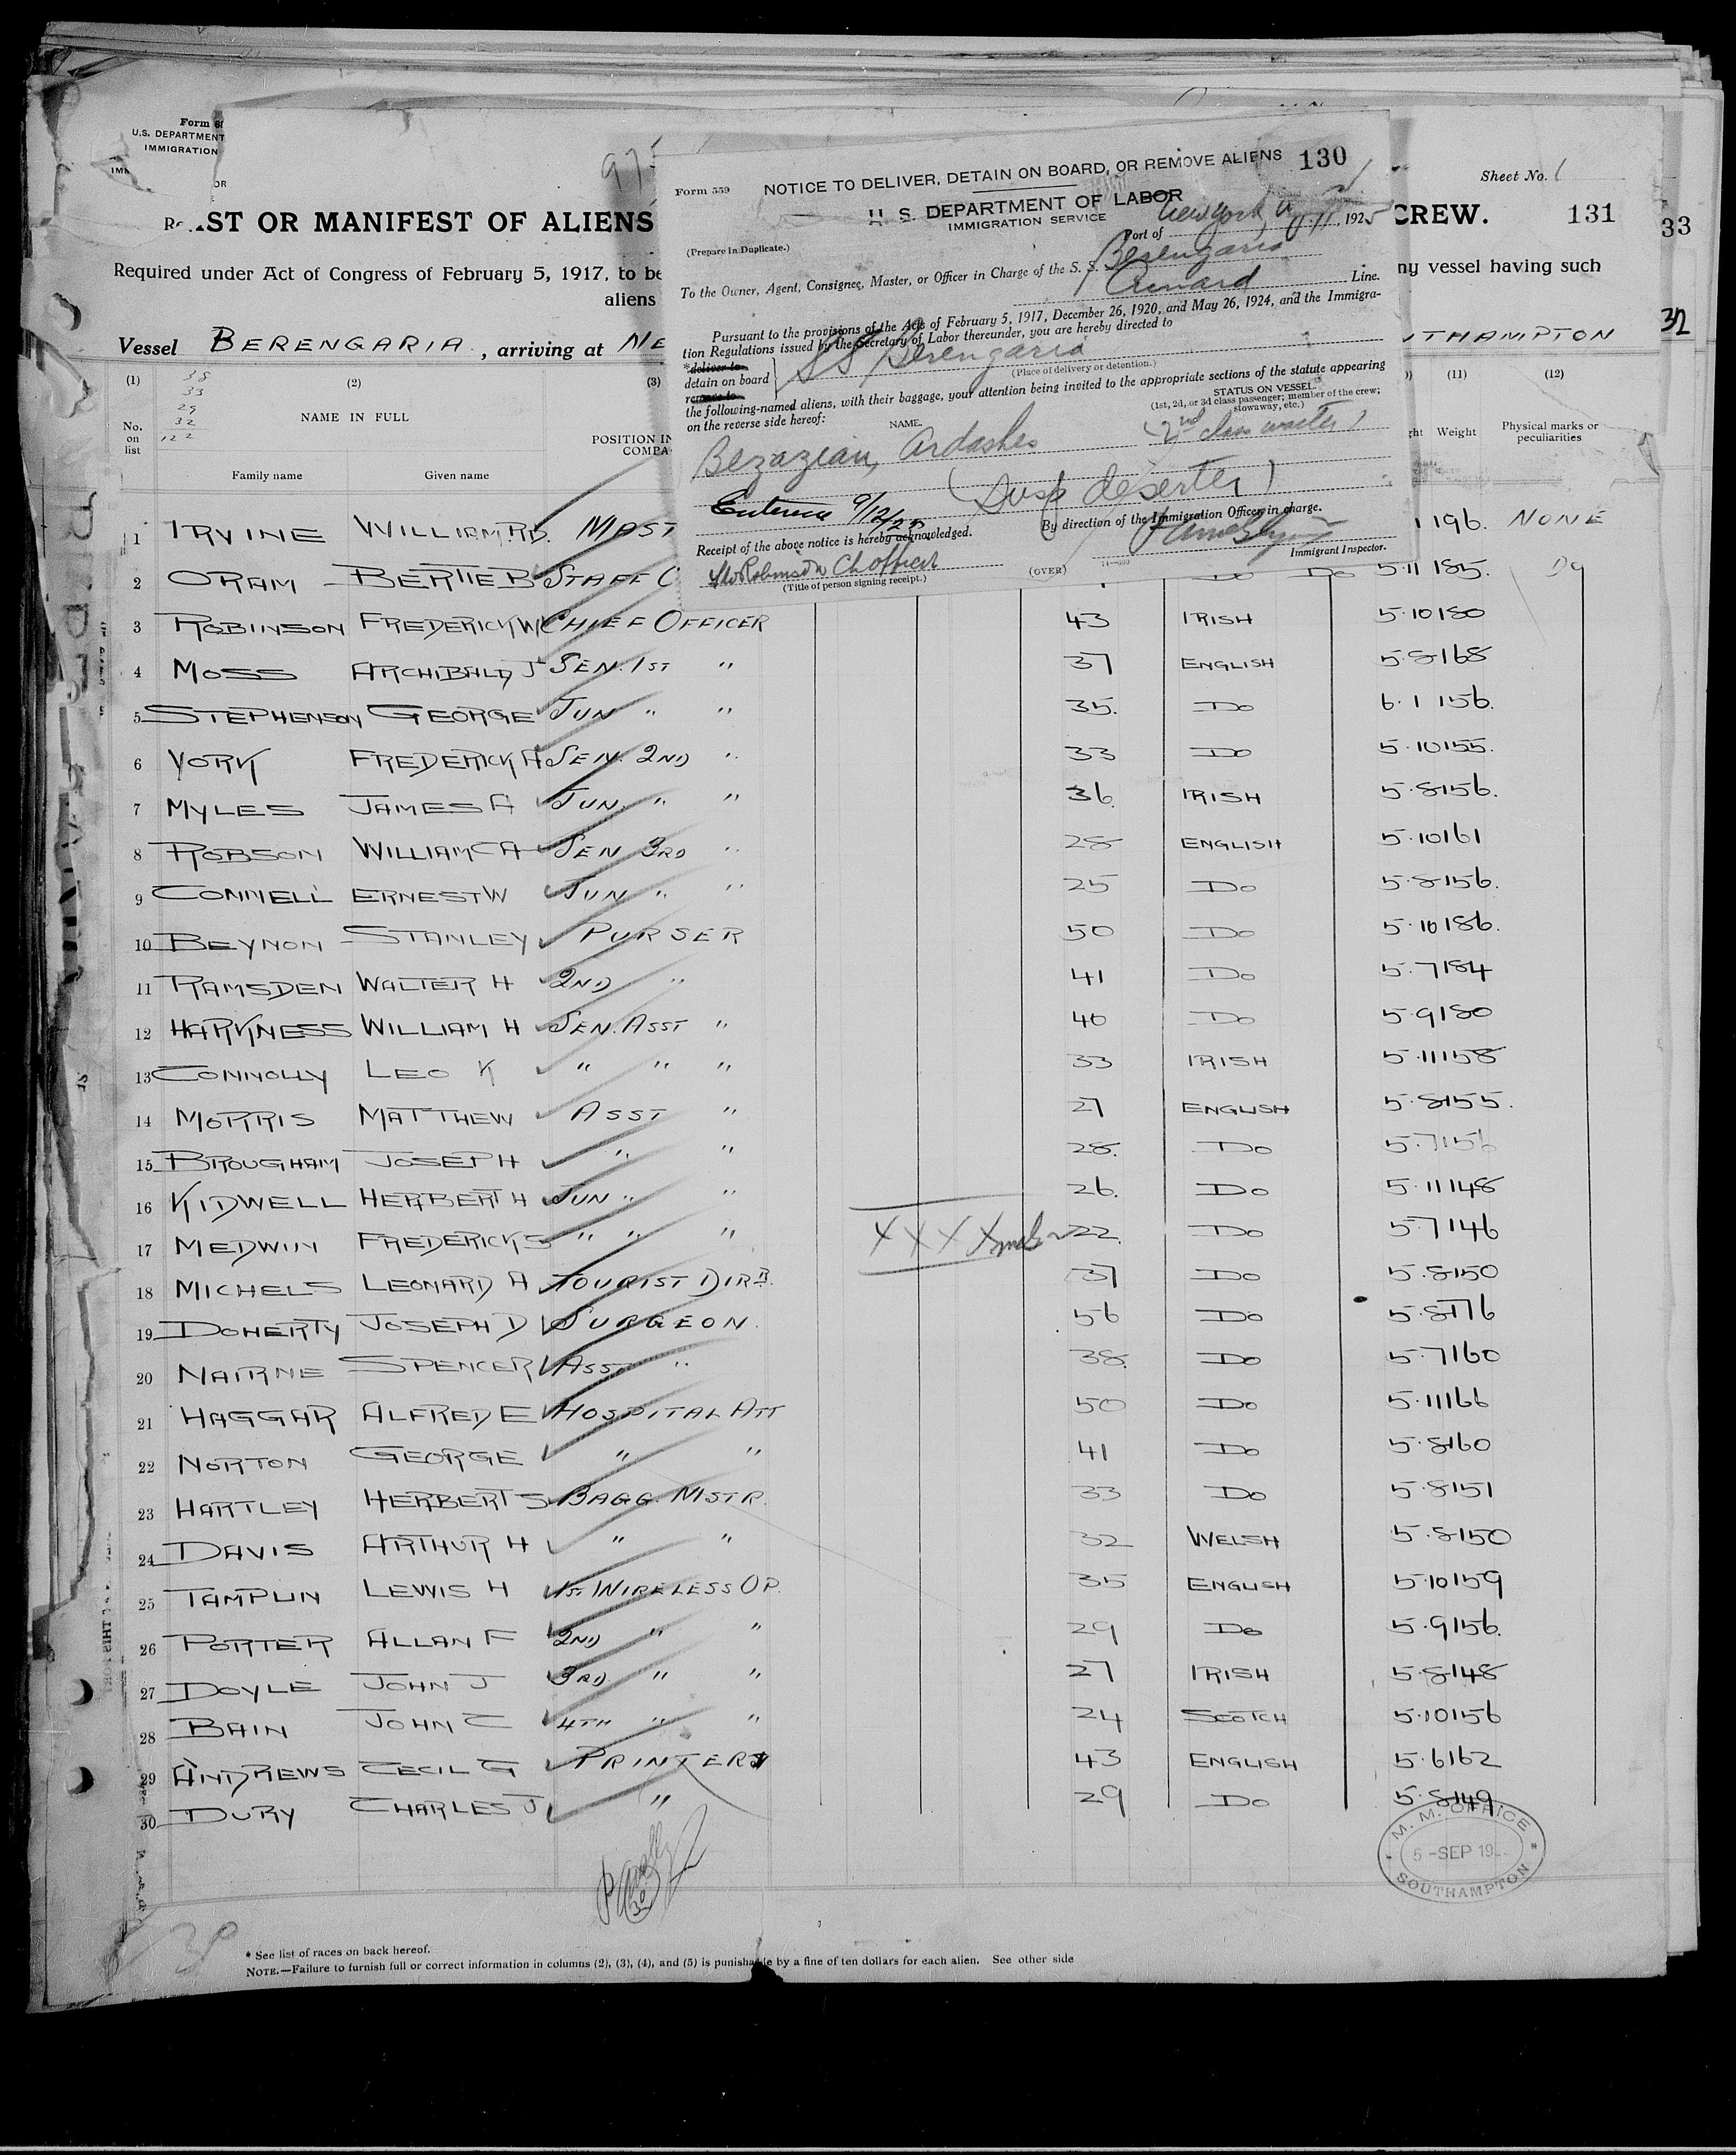 Form 559
NOTICE TO DELIVER, DETAIN ON BOARD, OR REMOVE ALIENS 130
U. S. DEPARTMENT OF LABOR
IMMIGRATION SERVICE
(Prepare in Duplicate.)
Port of New York, 1925
To the Owner, Agent, Consignee, Master, or Officer in Charge of the S. S. Berengaria
Cunard Line.
Pursuant to the provisions of the Acts of February 5, 1917, December 26, 1920, and May 26, 1924, and the Immigra-
tion Regulations issued by the Secretary of Labor thereunder, you are hereby directed to
*deliver to
detain on board SS Berengaria
remove to
(Place of delivery or detention.)
the following-named aliens, with their baggage, your attention being invited to the appropriate sections of the statute appearing
on the reverse side hereof:
NAME.
STATUS ON VESSEL
(1st, 2d, or 3d class passenger; member of the crew;
stowaway, etc.)
Bezazian, Ardashes (2nd class waiter)
(Susp deserter)
9/12/25
By direction of the Immigration Officer in charge.
Receipt of the above notice is hereby acknowledged.
Immigrant Inspector.
Robinson Ch officer
(Title of person signing receipt.)
(OVER)
U.S. DEPARTMENT
IMMIGRATION
Sheet No. 1
ST OR MANIFEST OF ALIENS CREW. 131
33
Required under Act of Congress of February 5, 1917, to be ny vessel having such
aliens
32
Vessel BERENGARIA, arriving at NE THAMPTON
(1) (2) (3) (11) (12)
38
33
29
32
122
No. on list
NAME IN FULL
POSITION IN
COMPA
Weight
Physical marks or peculiarities
Family name Given name
1 IRVINE WILLIAM.R.D. MAST 196. NONE
2 ORAM BERTIE B STAFF C Do Do 5.11 185. Do
3 ROBINSON FREDERICK W CHIEF OFFICER 43 IRISH 5.10 180
4 MOSS ARCHIBALD J SEN. 1ST " 37 ENGLISH 5.8 168
5 STEPHENSON GEORGE JUN " " 35. Do 6.1 156.
6 YORK FREDERICK A SEN. 2ND " 33 Do 5.10 155.
7 MYLES JAMES A JUN. " " 36. IRISH 5.8 156.
8 ROBSON WILLIAM C A SEN 3RD " 28 ENGLISH 5.10 161
9 CONNELL ERNEST W JUN " " 25 Do 5.8 156.
10 BEYNON STANLEY PURSER 50 Do 5.10 186.
11 RAMSDEN WALTER H 2ND " 41 Do 5.7 184
12 HARKNESS WILLIAM H SEN. ASST " 40 Do 5.9 180
13 CONNOLLY LEO K " " " 33 IRISH 5.11 158
14 MORRIS MATTHEW ASST " 27 ENGLISH 5.8 155.
15 BROUGHAM JOSEPH " " 28. Do 5.7 156
16 KIDWELL HERBERT H JUN " " 26. Do 5.11 148
17 MEDWIN FREDERICK S " " " XXXX 22. Do 5.7 146
18 MICHELS LEONARD A TOURIST DIRR. 37 Do 5.8 150
19 DOHERTY JOSEPH D SURGEON. 56 Do 5.8 176
20 NAIRNE SPENCER ASST " 38. Do 5.7 160
21 HAGGAR ALFRED E HOSPITAL ATT 50 Do 5.11 166
22 NORTON GEORGE " " 41 Do 5.8 160
23 HARTLEY HERBERT S BAGG. MSTR. 33 Do 5.8 151
24 DAVIS ARTHUR H " " 32 WELSH 5.8 150
25 TAMPLIN LEWIS H 1ST WIRELESS OP. 35 ENGLISH 5.10 159
26 PORTER ALLAN F 2ND " " 29 Do 5.9 156.
27 DOYLE JOHN J 3RD " " 27 IRISH 5.8 148
28 BAIN JOHN C 4TH " " 24 SCOTCH 5.10 156
29 ANDREWS CECIL G PRINTER 43 ENGLISH 5.6 162
30 DURY CHARLES J " 29 Do 5.8 149
M. M. OFFICE
5 -SEP 19
SOUTHAMPTON
* See list of races on back hereof.
NOTE.—Failure to furnish full or correct information in columns (2), (3), (4), and (5) is punishable by a fine of ten dollars for each alien. See other side